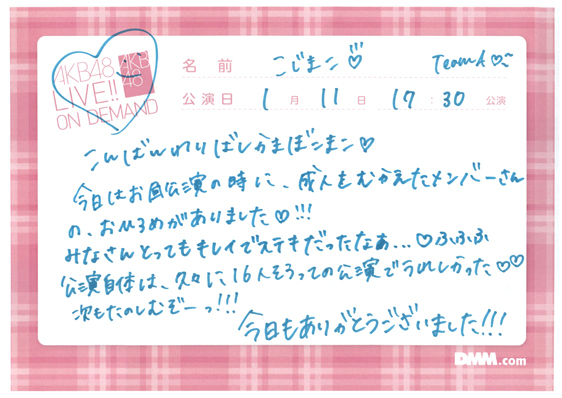 AKB48
LIVE!!
ON DEMAND
AKB
48
名前 こじまこ♡ TeamA♡
公演日 1月11日 17:30公演
こんばんわりばしかまぼこまこ♡
今日はお昼公演の時に、成人をむかえたメンバーさん
の、おひろめがありました♡!!!
みなさんとってもキレイでステキだったなぁ...♡ふふふ
公演自体は、久々に16人そろっての公演でうれしかった♡♡
次もたのしむぞーっ!!!
今日もありがとうございました!!!
DMM.com